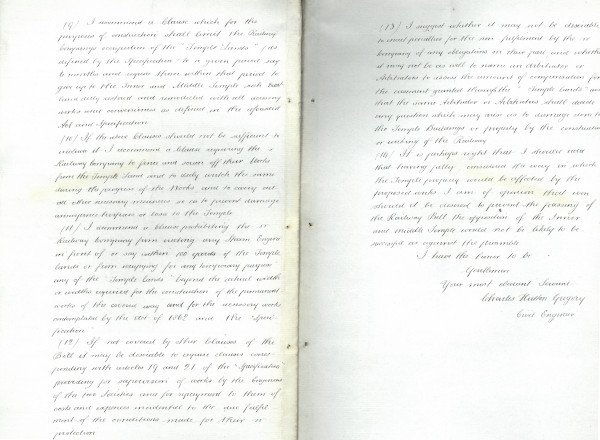 (9) I recommend a Clause which for the
purposes of construction shall limit the Railway
Company's occupation of the "Temple Lands" (as
defined by the Specification) to a given period say
months and require them within that period to
give up to the Inner and Middle Temple such
land duly restored and reinstated with all
works and conveniences as defined in the aforesaid
Act and Specification
(10) If the above Clauses should not be sufficient to
include it I recommend a Clause requiring the
Railway Company to fence and screen off their Works
from the Temple Land and to duly watch the same
during the progress of the Works and to carry out
all other necessary measures so as to prevent damage
annoyance trespass or loss to the Temple
(11) I recommend a clause prohibiting the
Railway Company from making any Steam Engine
in front of or say within 100 yards of the Temple
Lands or from occupying for any temporary purpose
any of the "Temple Lands" beyond the actual width
or widths required for the construction of the permanent
works of the covered way and for the accessory works
contemplated by the Act of 1862 and the "Speci-
fication"
(12) If not covered by other Clauses of the
Bill it may be desirable to require clauses corres-
ponding with articles 19 and 21 of the "Specification"
providing for supervision of works by the Engineers
of the two Societies and for repayment to them of
costs and expenses incidental to the due fulfil-
ment of the conditions made for their
protection
(13) I suggest whether it may not be desirable
to enact penalties for the non fulfilment by the
Company of any obligations on their part and whether
it may not be as well to name an Arbitrator or
Arbitrators to assess the amount of compensation for
the easement granted through the "Temple Lands" and
that the same Arbitrator or Arbitrators shall decide
any question which may arise as to damage done to
the Temple Buildings or property by the construction
or working of the Railway
(14) It is perhaps right that I should add
that having fully considered the way in which
the Temple property would be affected by the
proposed works I am of opinion that even
should it be desired to prevent the passing of
the Railway Bill the opposition of the Inner
and Middle Temple would not be likely to be
successful as against the preamble
I have the honor to be
Gentlemen
Your most obedient Servant
Charles Hutton Gregory
Civil Engineer